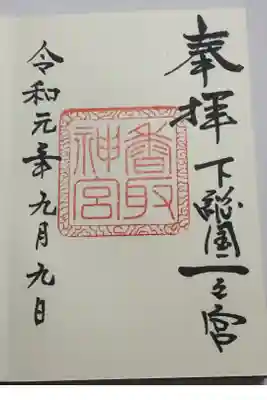 奉拝 下総國一之宮
香取神宮
令和元年九月九日